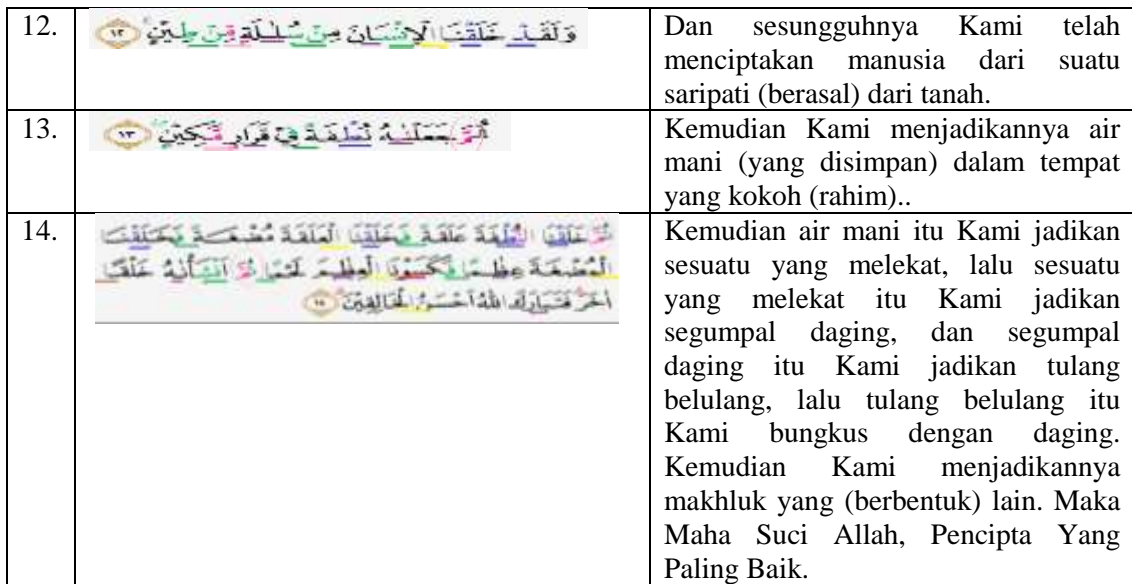 12.
وَلَقَدْ خَلَقْنَا الْاِنْسَانَ مِنْ سُلٰلَةٍ مِّنْ طِيْنٍ ۚ ١٢
Dan sesungguhnya Kami telah
menciptakan manusia dari suatu
saripati (berasal) dari tanah.
13.
ثُمَّ جَعَلْنٰهُ نُطْفَةً فِيْ قَرَارٍ مَّكِيْنٍ ۖ ١٣
Kemudian Kami menjadikannya air
mani (yang disimpan) dalam tempat
yang kokoh (rahim)..
14.
ثُمَّ خَلَقْنَا النُّطْفَةَ عَلَقَةً فَخَلَقْنَا الْعَلَقَةَ مُضْغَةً فَخَلَقْنَا
الْمُضْغَةَ عِظٰمًا فَكَسَوْنَا الْعِظٰمَ لَحْمًا ثُمَّ اَنْشَأْنٰهُ خَلْقًا
اٰخَرَ ۗ فَتَبَارَكَ اللّٰهُ اَحْسَنُ الْخَالِقِيْنَ ۗ ١٤
Kemudian air mani itu Kami jadikan
sesuatu yang melekat, lalu sesuatu
yang melekat itu Kami jadikan
segumpal daging, dan segumpal
daging itu Kami jadikan tulang
belulang, lalu tulang belulang itu
Kami bungkus dengan daging.
Kemudian Kami menjadikannya
makhluk yang (berbentuk) lain. Maka
Maha Suci Allah, Pencipta Yang
Paling Baik.